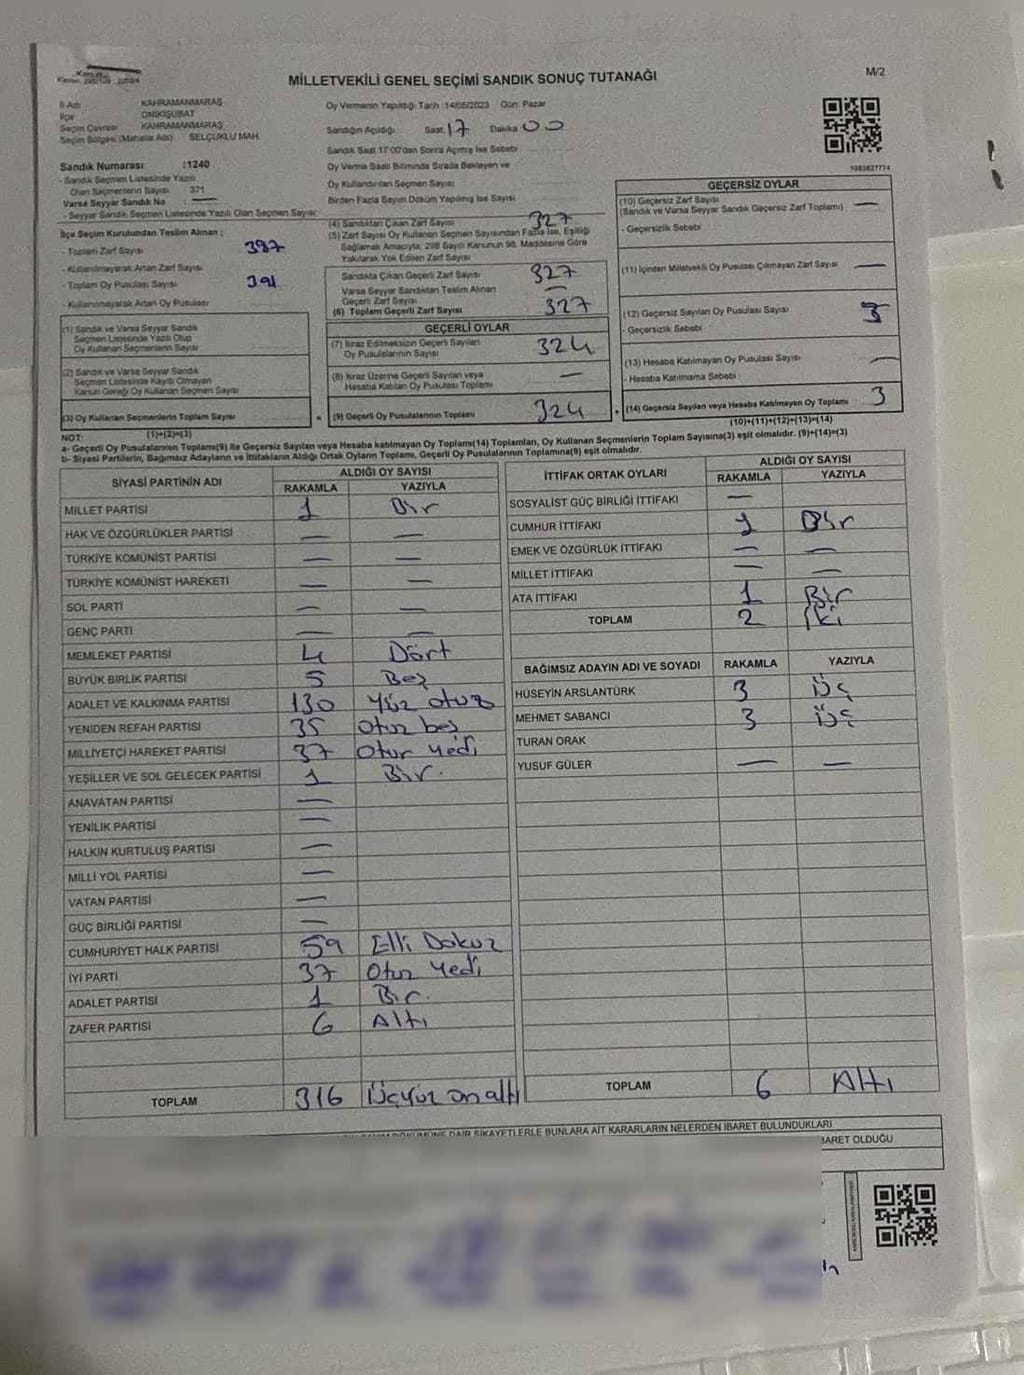 MİLLETVEKİLİ GENEL SEÇİMİ SANDIK SONUÇ TUTANAĞI
M/2
İl Adı KAHRAMANMARAŞ
İlçe ONİKİŞUBAT
Seçim Çevresi KAHRAMANMARAŞ
Seçim Bölgesi (Mahalle Adı) : SELÇUKLU MAH.
Sandık Numarası :1240
- Sandık Seçmen Listesinde Yazılı
Olan Seçmenlerin Sayısı : 371
Varsa Seyyar Sandık No : —
- Seyyar Sandık Seçmen Listesinde Yazılı Olan Seçmen Sayısı:
İlçe Seçim Kurulundan Teslim Alınan ;
- Toplam Zarf Sayısı 397
- Kullanılmayarak Artan Zarf Sayısı
- Toplam Oy Pusulası Sayısı 391
- Kullanılmayarak Artan Oy Pusulası
(1) Sandık ve Varsa Seyyar Sandık
Seçmen Listesinde Yazılı Olup
Oy Kullanan Seçmenlerin Sayısı
(2) Sandık ve Varsa Seyyar Sandık
Seçmen Listesinde Kayıtlı Olmayan
Kanun Gereği Oy Kullanan Seçmen Sayısı
(3) Oy Kullanan Seçmenlerin Toplam Sayısı
(1)+(2)=(3)
Oy Vermenin Yapıldığı Tarih :14/05/2023 Gün: Pazar
Sandığın Açıldığı Saat 17 Dakika 00
Sandık Saat 17:00'den Sonra Açılmış İse Sebebi
Oy Verme Saati Bitiminde Sırada Bekleyen ve
Oy Kullandırılan Seçmen Sayısı
Birden Fazla Sayım Döküm Yapılmış İse Sayısı
(4) Sandıktan Çıkan Zarf Sayısı 327
(5) Zarf Sayısı Oy Kullanan Seçmen Sayısından Fazla İse, Eşitliği
Sağlamak Amacıyla; 298 Sayılı Kanunun 98. Maddesine Göre
Yakılarak Yok Edilen Zarf Sayısı
Sandıkta Çıkan Geçerli Zarf Sayısı 327
Varsa Seyyar Sandıktan Teslim Alınan
Geçerli Zarf Sayısı —
(6) Toplam Geçerli Zarf Sayısı 327
GEÇERLİ OYLAR
(7) İtiraz Edilmeksizin Geçerli Sayılan
Oy Pusulalarının Sayısı 324
(8) İtiraz Üzerine Geçerli Sayılan veya
Hesaba Katılan Oy Pusulası Toplamı —
= (9) Geçerli Oy Pusulalarının Toplamı 324
1083827774
GEÇERSİZ OYLAR
(10) Geçersiz Zarf Sayısı
(Sandık ve Varsa Seyyar Sandık Geçersiz Zarf Toplamı) —
- Geçersizlik Sebebi
(11) İçinden Milletvekili Oy Pusulası Çıkmayan Zarf Sayısı —
(12) Geçersiz Sayılan Oy Pusulası Sayısı 3
- Geçersizlik Sebebi
(13) Hesaba Katılmayan Oy Pusulası Sayısı —
- Hesaba Katılmama Sebebi
+ (14) Geçersiz Sayılan veya Hesaba Katılmayan Oy Toplamı 3
(10)+(11)+(12)+(13)=(14)
NOT:
a- Geçerli Oy Pusulalarının Toplamı(9) ile Geçersiz Sayılan veya Hesaba katılmayan Oy Toplamı(14) Toplamları, Oy Kullanan Seçmenlerin Toplam Sayısına(3) eşit olmalıdır. (9)+(14)=(3)
b- Siyasi Partilerin, Bağımsız Adayların ve İttifakların Aldığı Ortak Oyların Toplamı, Geçerli Oy Pusulalarının Toplamına(9) eşit olmalıdır.
SİYASİ PARTİNİN ADI ALDIĞI OY SAYISI
RAKAMLA YAZIYLA
MİLLET PARTİSİ 1 Bir
HAK VE ÖZGÜRLÜKLER PARTİSİ — —
TÜRKİYE KOMÜNİST PARTİSİ — —
TÜRKİYE KOMÜNİST HAREKETİ — —
SOL PARTİ — —
GENÇ PARTİ — —
MEMLEKET PARTİSİ 4 Dört
BÜYÜK BİRLİK PARTİSİ 5 Beş
ADALET VE KALKINMA PARTİSİ 130 Yüz otuz
YENİDEN REFAH PARTİSİ 35 Otuz beş
MİLLİYETÇİ HAREKET PARTİSİ 37 Otuz yedi
YEŞİLLER VE SOL GELECEK PARTİSİ 1 Bir.
ANAVATAN PARTİSİ —
YENİLİK PARTİSİ —
HALKIN KURTULUŞ PARTİSİ —
MİLLİ YOL PARTİSİ —
VATAN PARTİSİ —
GÜÇ BİRLİĞİ PARTİSİ —
CUMHURİYET HALK PARTİSİ 59 Elli Dokuz
İYİ PARTİ 37 Otuz Yedi
ADALET PARTİSİ 1 Bir.
ZAFER PARTİSİ 6 Altı
TOPLAM 316 Üçyüz on altı
İTTİFAK ORTAK OYLARI ALDIĞI OY SAYISI
RAKAMLA YAZIYLA
SOSYALİST GÜÇ BİRLİĞİ İTTİFAKI —
CUMHUR İTTİFAKI 1 Bir
EMEK VE ÖZGÜRLÜK İTTİFAKI — —
MİLLET İTTİFAKI — —
ATA İTTİFAKI 1 Bir
TOPLAM 2 İki
BAĞIMSIZ ADAYIN ADI VE SOYADI RAKAMLA YAZIYLA
HÜSEYİN ARSLANTÜRK 3 Üç
MEHMET SABANCI 3 Üç
TURAN ORAK
YUSUF GÜLER — —
TOPLAM 6 Altı
DÖKÜMÜNE DAİR ŞİKAYETLERLE BUNLARA AİT KARARLARIN NELERDEN İBARET BULUNDUKLARI
BARET OLDUĞU